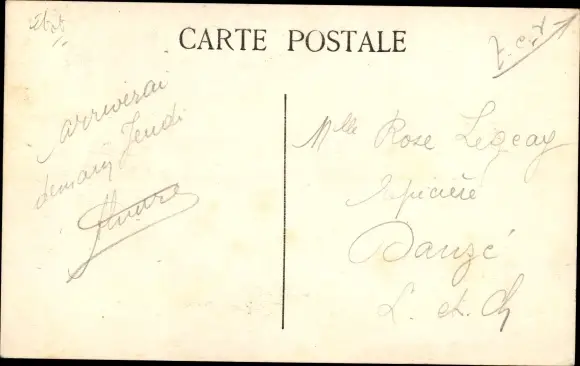 CARTE POSTALE
arriverai
demain Jeudi
Mlle Rose Legeay
épicière
Danzé
L. et. Ch